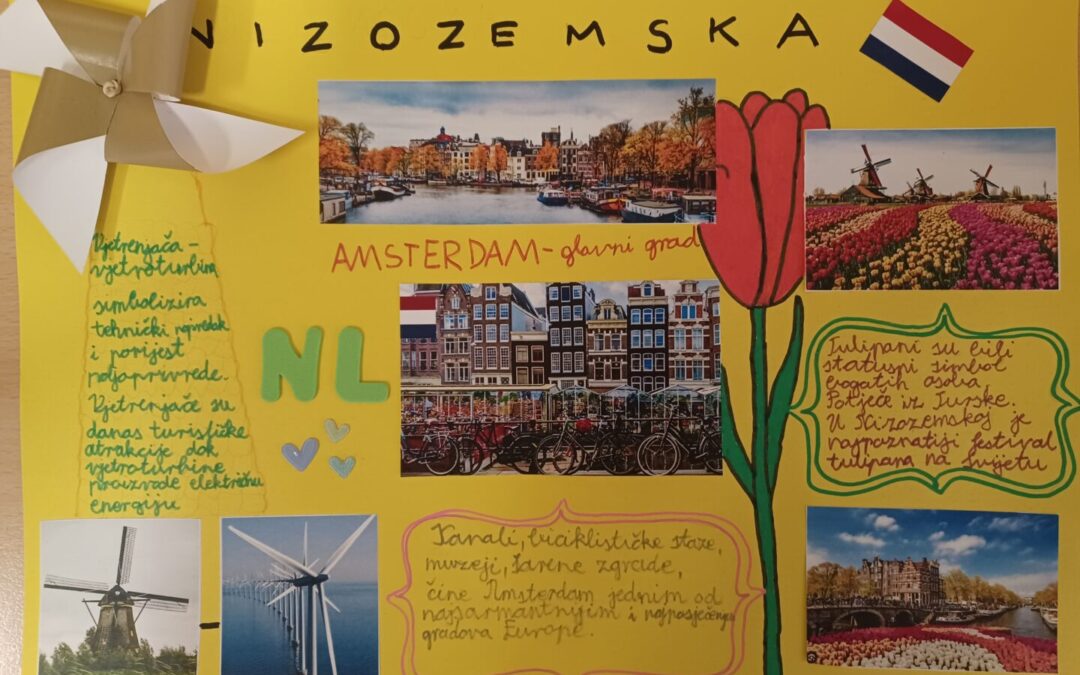 NIZOZEMSKA
AMSTERDAM - glavni grad
Vjetrenjača -
vjetroturbina
simbolizira
tehnički napredak
i porijest
poljoprivrede.
Vjetrenjače su
danas turističke
atrakcije dok
vjetroturbine
proizvode električnu
energiju
NL
Tulipani su bili
statusni simbol
bogatih osoba.
Potječe iz Turske.
U Nizozemskoj je
najpoznatiji festival
tulipana na svijetu
Kanali, biciklističke staze,
muzeji, šarene zgrade,
čine Amsterdam jednim od
najšarmantnijim i najposjećenijih
gradova Europe.